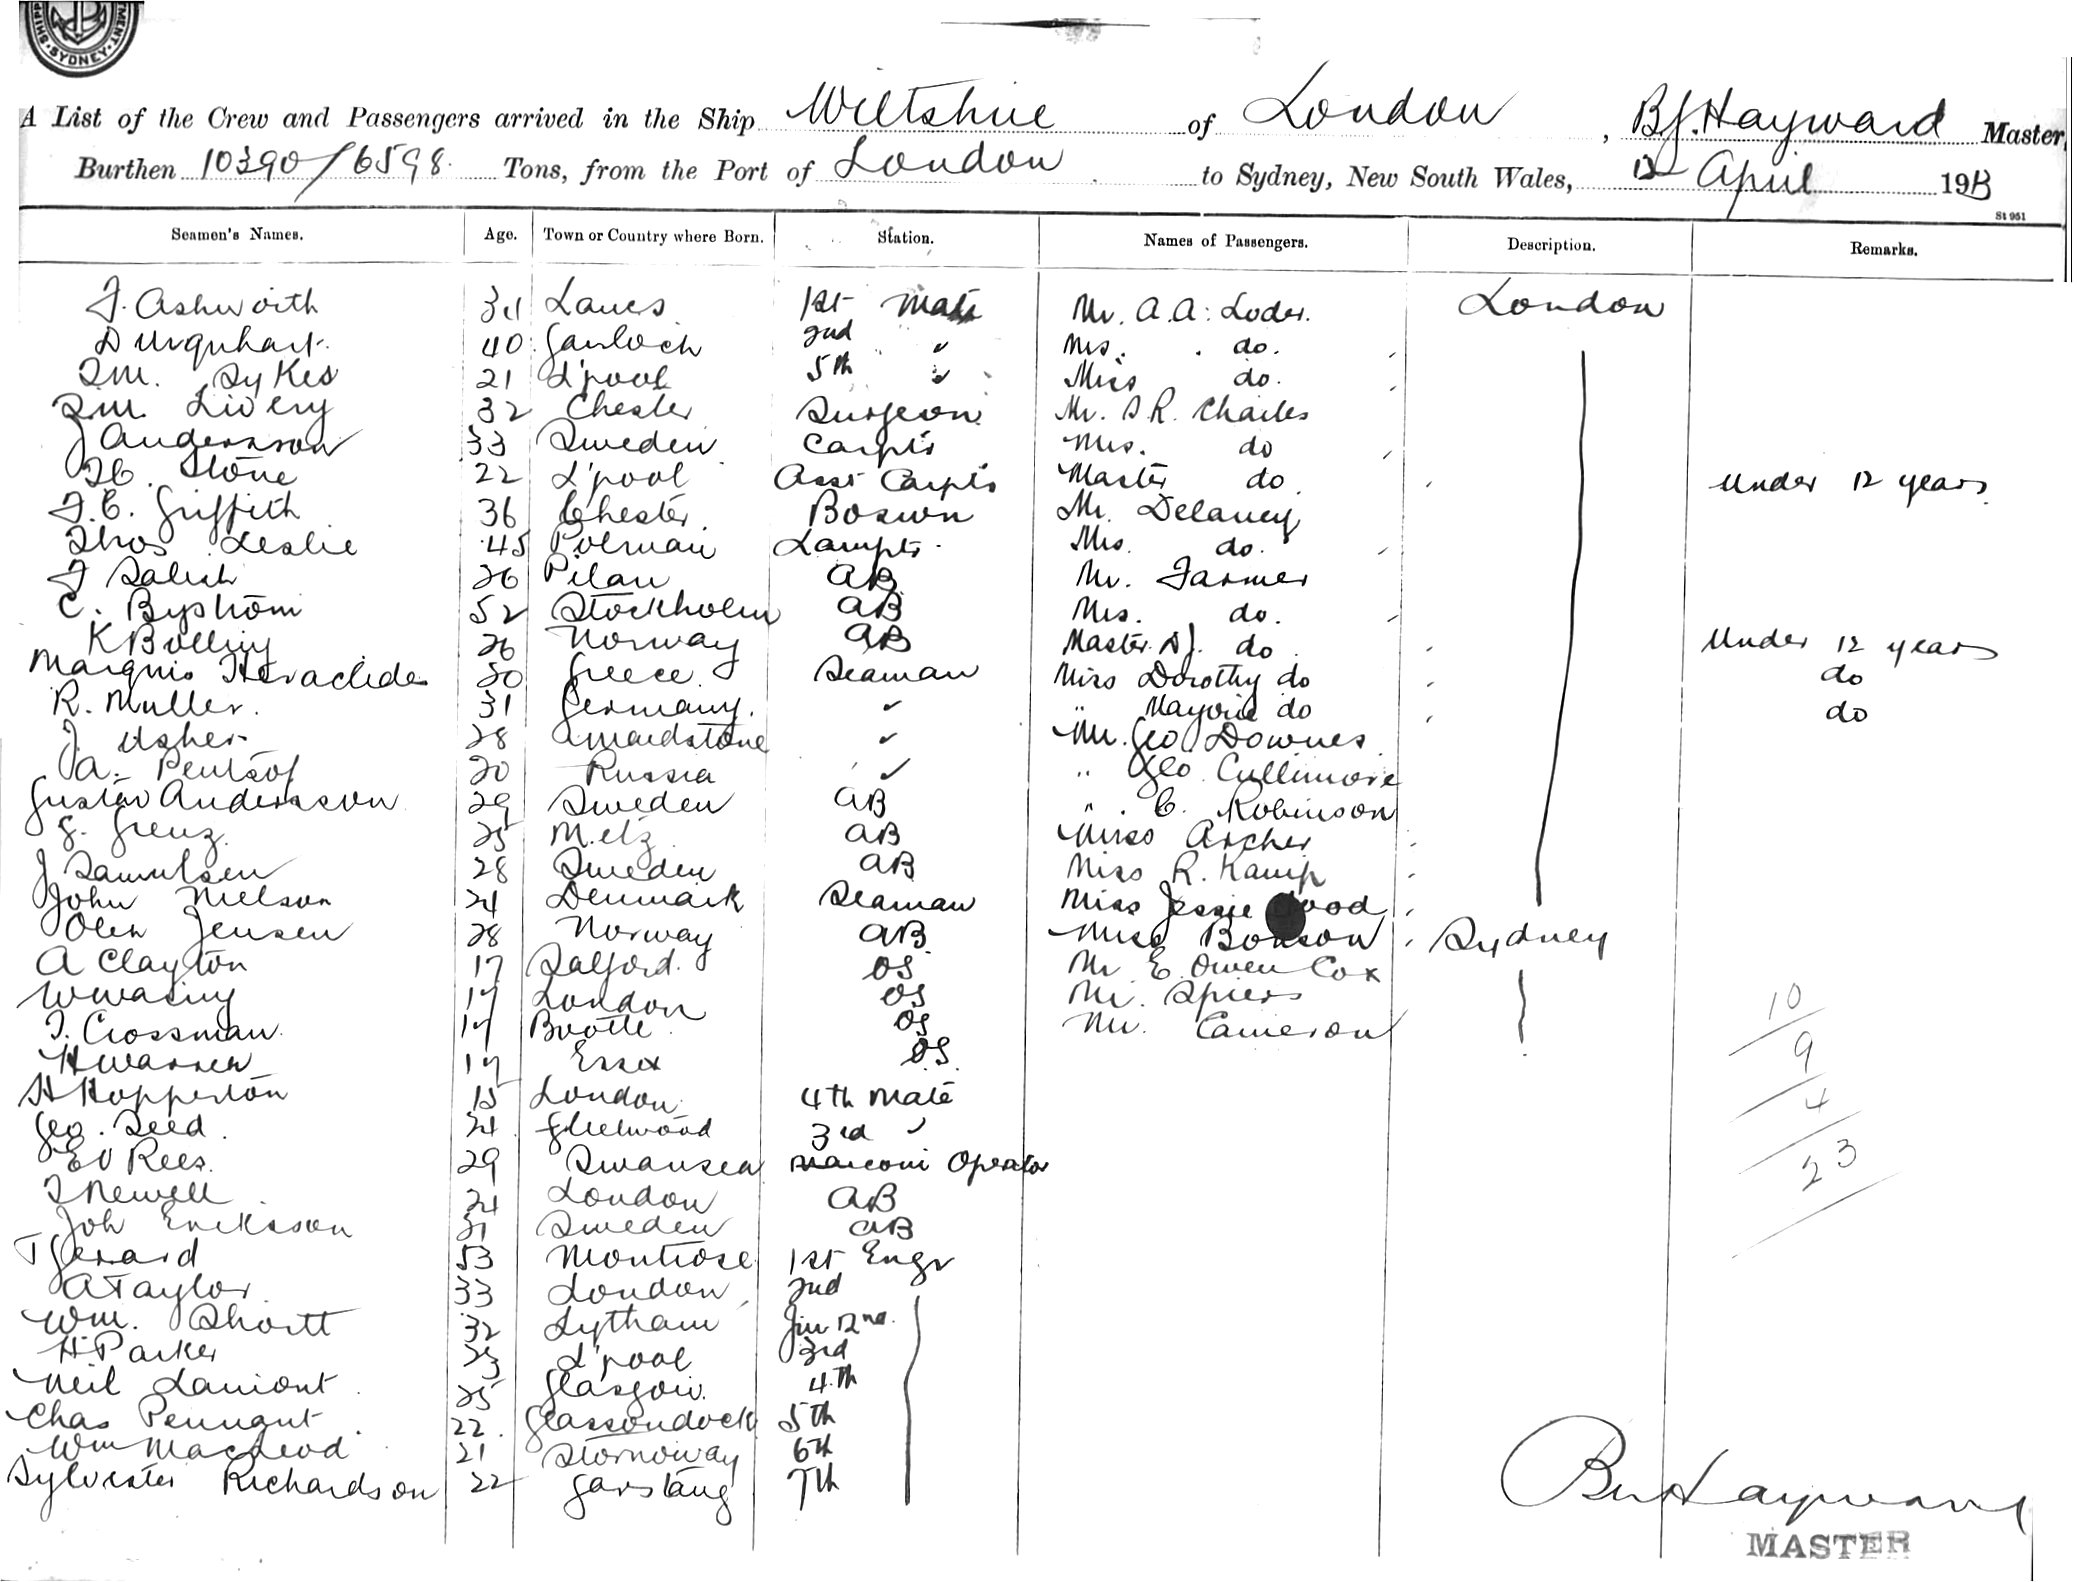 SHIPP MENT · SYDNEY ·
A List of the Crew and Passengers arrived in the Ship Wiltshire of London, B.J. Hayward Master,
Burthen 10390/6598 Tons, from the Port of London to Sydney, New South Wales, 12 April 1913
St 951
Seamen's Names. Age. Town or Country where Born. Station. Names of Passengers. Description. Remarks.
F. Ashworth 34 Lancs 1st Mate Mr. A.A. Loder. London
D Urquhart. 40 Gairloch 2nd " Mrs. do.
Sykes 21 L'pool 5th " Miss do.
Livery 32 Chester Surgeon Mr. S.R. Charles
J Andersson 33 Sweden Carptr Mrs. do
Stone 22 L'pool Asst Carptr Master do Under 12 years
F.C. Griffith 36 Chester Boswn Mr. Delaney
Thos Leslie 45 Lamptr. Mrs. do.
F Salish 26 Pilau AB Mr. Farmer
C. Byström 52 Stockholm AB Mrs. do.
K Bulling 26 Norway AB Master. do Under 12 years
Marquis Heraclides 20 Greece Seaman Miss Dorothy do do
R. Muller. 31 Germany. " " Marjorie do do
J. Usher 28 Maidstone " Mr. Geo Downes
A. Pentsof 20 Russia " " Geo. Cullimore
Gustav Andersson 29 Sweden AB " C. Robinson
G. Grenz 25 Metz AB Miss Archer
J Samulsen 28 Sweden AB Miss R. Kamp
John Nielson 24 Denmark Seaman Miss Jessie ood
Olen Jensen 28 Norway AB Miss Bonson Sydney
A Clayton 17 Salford. OS Mr E. Owen Cox
W Waring 17 London OS Mr. Spiers
T. Crossman 17 Bootle OS Mr. Cameron
H Warren 17 Essex OS
H Hopperton 15 London 4th Mate
Geo. Seed 24 Fleetwood 3rd "
E V Rees. 29 Swansea Marconi Oprator
T Newell 24 London AB
Joh Eriksson 21 Sweden AB
T Gerrard 53 Montrose 1st Engr
A Taylor 33 London 2nd
Wm. Shortt 32 Lytham Jun 2nd.
H Parker 23 L'pool 3rd
Neil Lamont 25 Glasgow. 4th
Chas Pennant 22 Glassondock 5th
Wm MacLeod 21 Stornoway 6th
Sylvester Richardson 22 Garstang 7th
10
9
4
23
B Hayward
MASTER